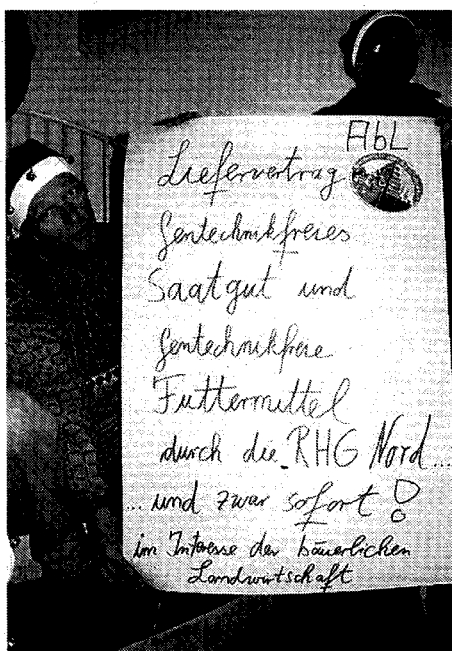 AbL
Liefervertrag
Gentechnikfreies
Saatgut und
Gentechnikfreie
Futtermittel
durch die RHG Nord...
...und zwar sofort!
im Interesse der bäuerlichen
Landwirtschaft